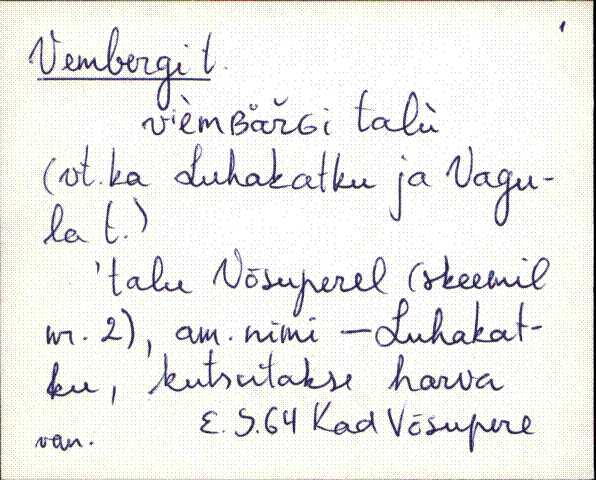 Vembergi t.
vièmʙär̆ɢi talù
(vt. ka Luhakatku ja Vagu-
la t.)
'talu Võsuperel (skeemil
nr. 2), am. nimi — Luhakat-
ku, kutsutakse harva
van. E. S. 64 Kad Võsupere